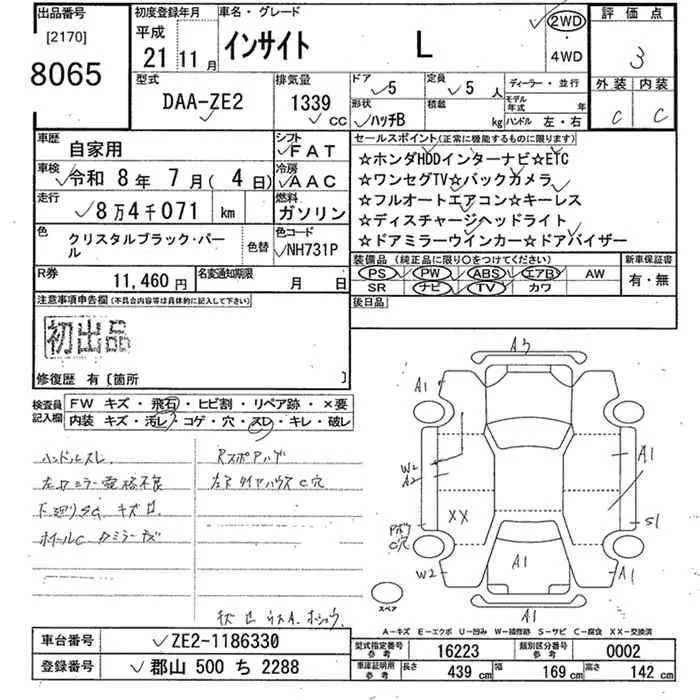 出品番号
[2170]
8065
初度登録年月
平成
21 11月
車名・グレード
インサイト L
2WD
・
4WD
評価点
3
外装 内装
C C
型式
DAA-ZE2
排気量
1339 cc
ドア 5
定員 5 人
形状 ハッチB
積載 kg
ディーラー・並行
モデル年式 年
ハンドル 左・右
車歴
自家用
シフト
FAT
車検
令和 8年 7月( 4日)
冷房
AAC
走行
8万4千071 km
燃料
ガソリン
色
クリスタルブラック・パール
色替
色コード
NH731P
R券
11,460円
名変通知期限
月 日
セールスポイント(正常に機能するものに限ります)
☆ホンダHDDインターナビ☆ETC
☆ワンセグTV☆バックカメラ
☆フルオートエアコン☆キーレス
☆ディスチャージヘッドライト
☆ドアミラーウインカー☆ドアバイザー
装備品(純正品に限り〇をつけてください)
PS PW ABS エアB AW
SR ナビ TV カワ
新車保証書
有・無
後日品
注意事項申告欄(不具合内容等は具体的に記入して下さい)
初出品
修復歴 有〔箇所 〕
検査員記入欄
FW キズ・飛石・ヒビ割・リペア跡・×要
内装 キズ・汚レ・コゲ・穴・スレ・キレ・破レ
ハンドルスレ
左ドミラー電格不良
下廻りサビ キズ
ホイールC
左Rタイヤハウス C穴
A3
A1
W2
A2
XX
C穴
W2
A1
A1
S1
A1
A1
スペア
A-キズ E-エクボ U-凹み W-補修跡 S-サビ C-腐食 XX-交換済
車台番号
ZE2-1186330
登録番号
郡山 500 ち 2288
型式指定番号 参考
16223
類別区分番号 参考
0002
車庫証明用 参考
長さ 439 cm
幅 169 cm
高さ 142 cm